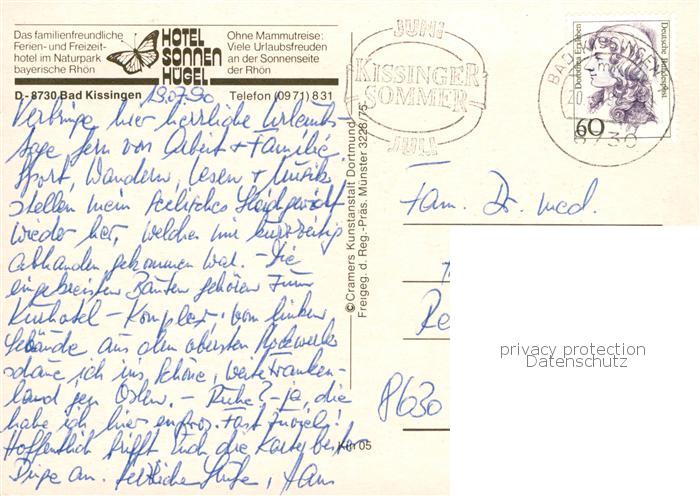 Das familienfreundliche
Ferien- und Freizeit-
hotel im Naturpark
bayerische Rhön
HOTEL
SONNEN
HÜGEL
Ohne Mammutreise:
Viele Urlaubsfreuden
an der Sonnenseite
der Rhön
D-8730 Bad Kissingen
Telefon (0971) 831
19.07.90
Verbringe hier herrliche Urlaubs-
tage fern von Arbeit + Familie.
Sport, Wandern, Lesen + Musik
stellen mein seelisches Gleichgewicht
wieder her, welches mir kurzzeitig
abhanden gekommen war. - Die
eingekreisten Bauten gehören zum
Kurhotel-Komplex; vom linken
Gebäude aus dem obersten Stockwerke
schaue ich ins schöne, weite Franken-
land gen Osten. - Ruhe? - ja, die
habe ich hier en gros. Fast zuviel!
Hoffentlich trifft Euch die Karte bester
Dinge an. Herzliche Grüße, Hans
© Cramers Kunstanstalt Dortmund
Freigeg. d. Reg.-Präs. Münster 3228/75
JUNI
KISSINGER
SOMMER
JULI
BAD KISSINGEN
20
8730
Deutsche Bundespost
Dorothea Erxleben
60
Fam. Dr. med.
Re
8630
privacy protection
Datenschutz
05